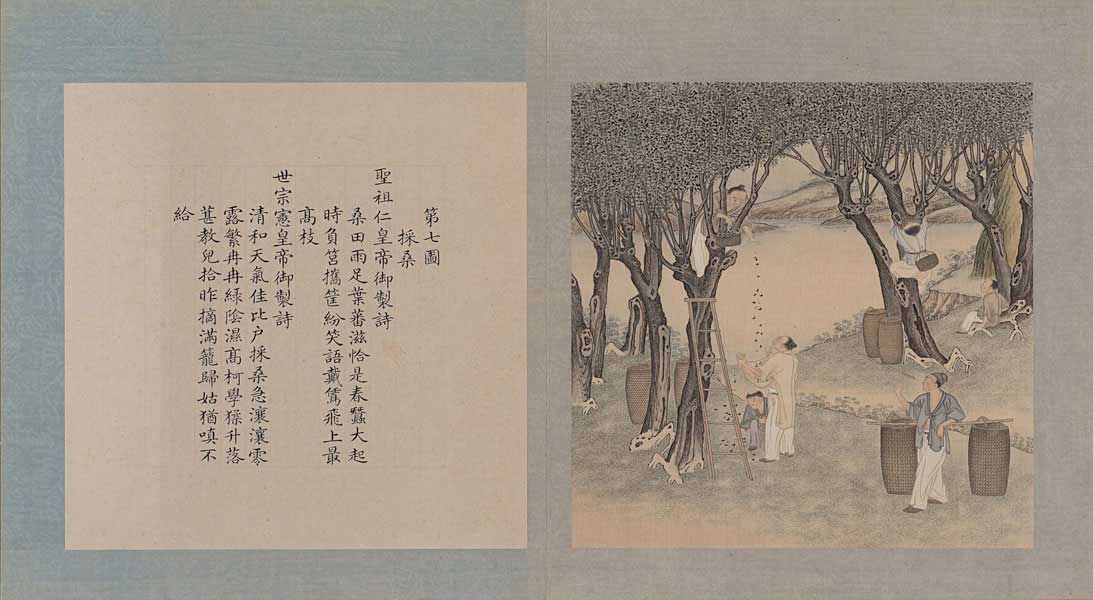 第七圖
採桑
聖祖仁皇帝御製詩
桑田雨足葉蕃滋恰是春蠶大起
時負筥攜筐紛笑語戴鵀飛上最
髙枝
世宗憲皇帝御製詩
清和天氣佳比户採桑急瀼瀼零
露繁冉冉綠陰濕髙柯學猱升落
葚教兒拾昨摘滿籠歸姑猶嗔不
給